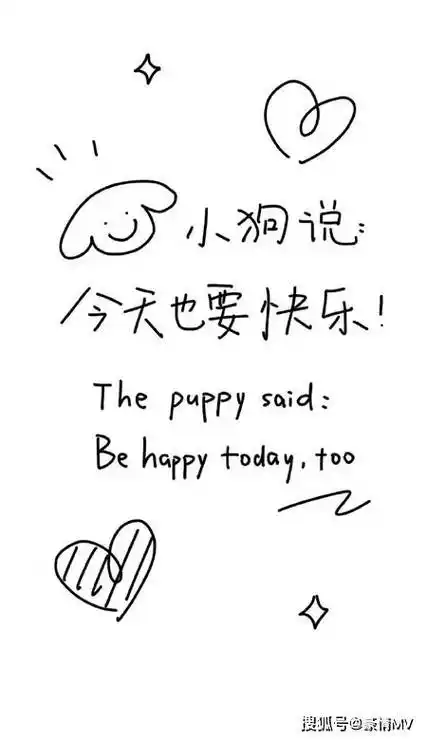 小狗说:
今天也要快乐!
The puppy said:
Be happy today, too
搜狐号@豪情MV